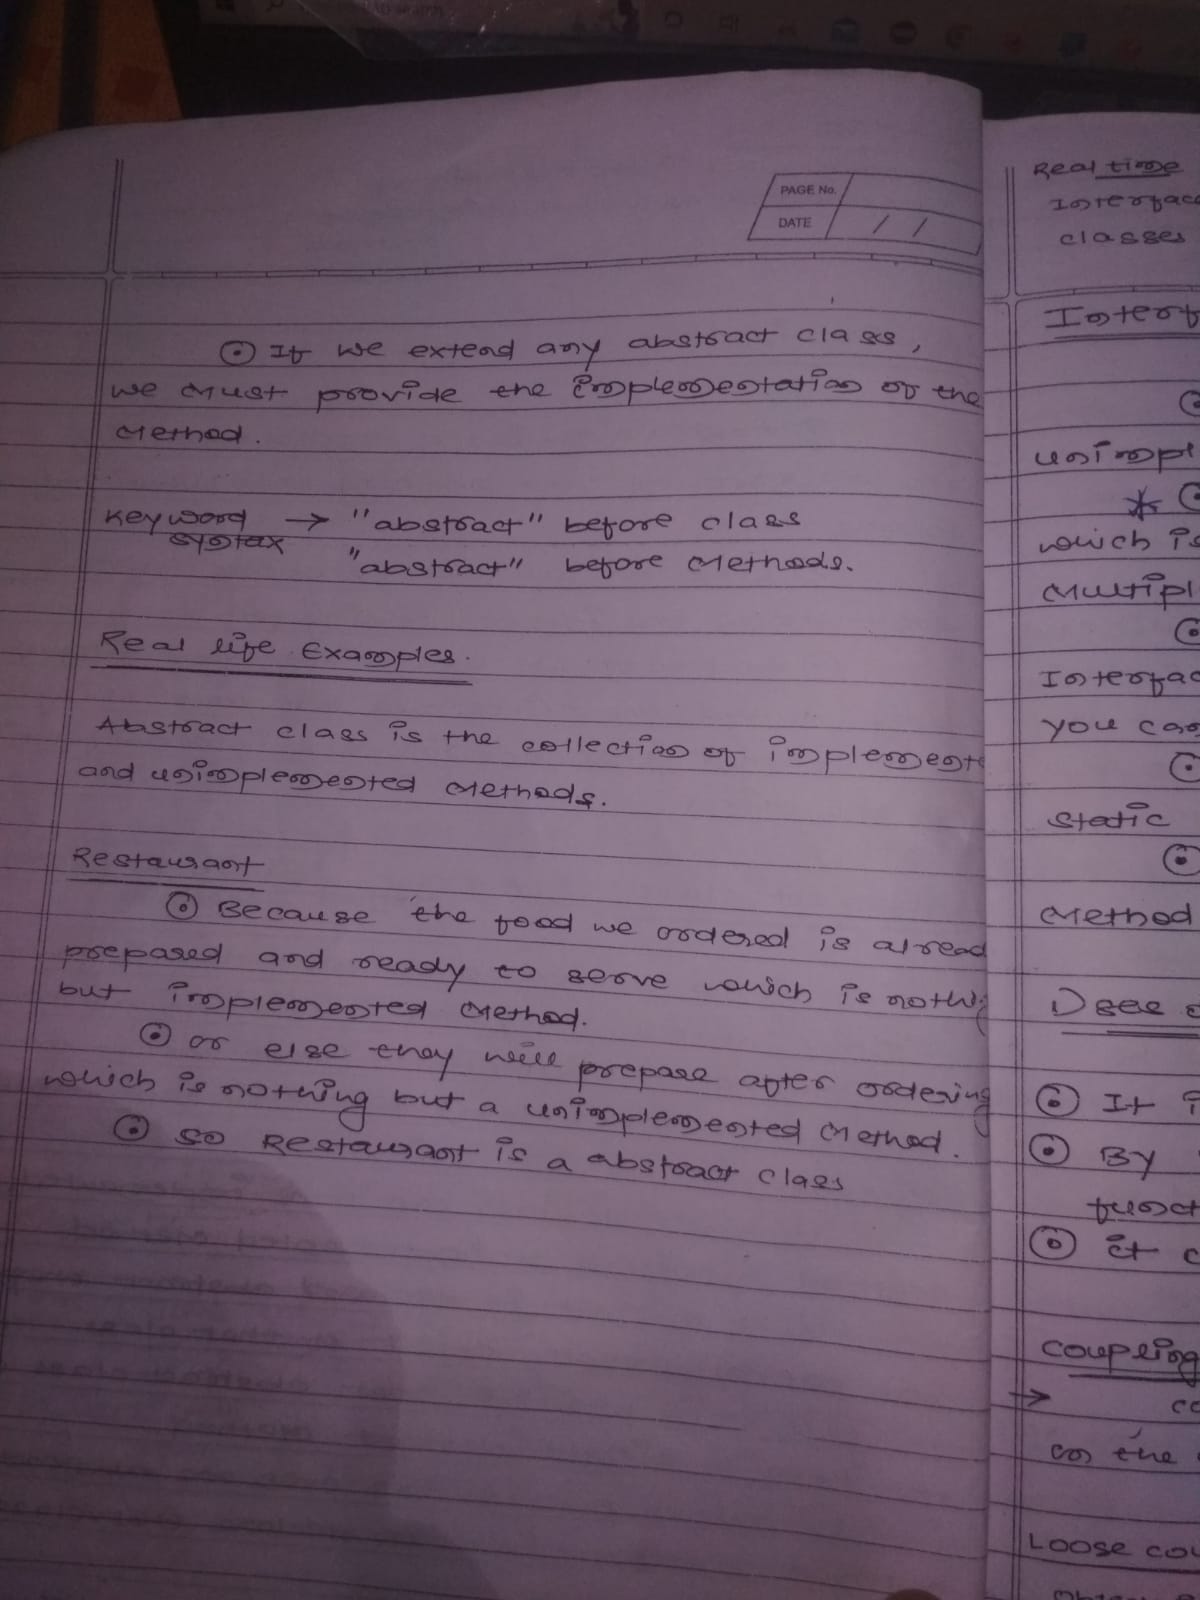 PAGE No.
DATE / /
⊙ If we extend any abstract class,
we must provide the implementation of the
method.
Keyword → "abstract" before class
syntax "abstract" before methods.
Real life Examples.
Abstract class is the collection of implemente
and unimplemented methods.
Restaurant
⊙ Because the food we ordered is alread
prepared and ready to serve which is nothing
but implemented method.
⊙ or else they will prepare after ordering
which is nothing but a unimplemented method.
⊙ So Restaurant is a abstract class
Real time
Interfac
classes
Interf
unimpl
*
which is
multipl
Interfac
you can
static
method
⊙ It i
⊙ By
funct
⊙ it c
Coupling
→ co
on the
Loose cou